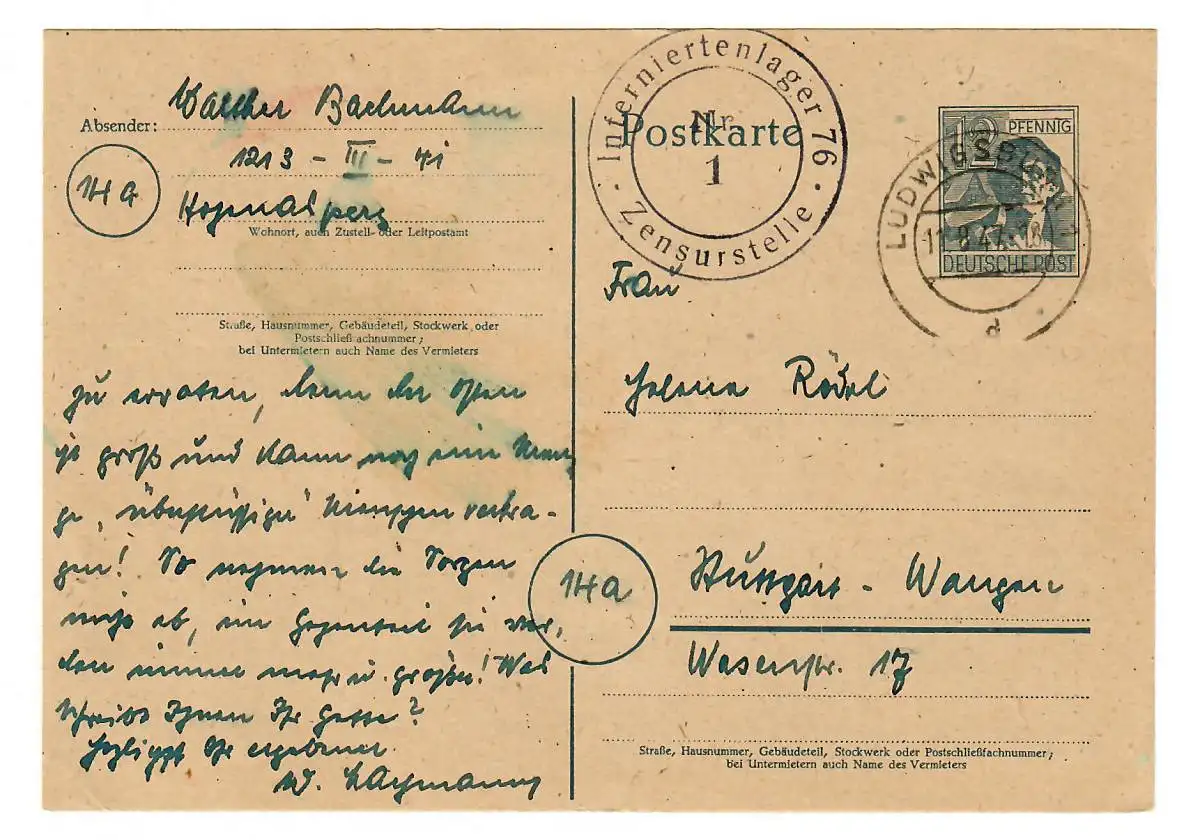 Absender: Walther Bachmann
1213 - III - 41
14a
Hohenasperg
Wohnort, auch Zustell- oder Leitpostamt
Straße, Hausnummer, Gebäudeteil, Stockwerk oder
Postschließfachnummer;
bei Untermietern auch Name des Vermieters
zu erraten, denn der Ofen
ist groß und kann noch eine Men
ge "überflüssige" Menschen vertra-
gen! So nehmen die Sorgen
nicht ab, im Gegenteil sie wer-
den immer mehr u. größer! Was
schreibt Ihnen Ihr Gatte?
Herzlichst Ihr ergebener
W. Bachmann
Postkarte
Interniertenlager 76
Nr.
1
Zensurstelle
12 PFENNIG
DEUTSCHE POST
LUDWIGSBURG
8.47.-18
d
Frau
Helene Rödel
14a
Stuttgart - Wangen
Wasenstr. 17
Straße, Hausnummer, Gebäudeteil, Stockwerk oder Postschließfachnummer;
bei Untermietern auch Name des Vermieters